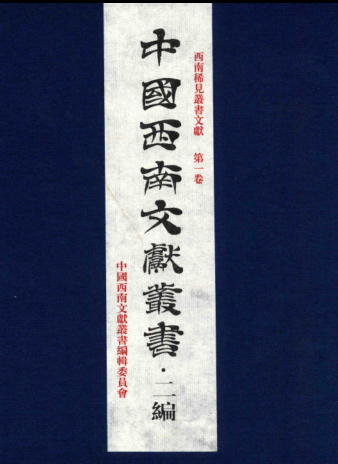 西南稀見叢書文獻 第一卷
中國西南文獻叢書·二編
中國西南文獻叢書編輯委員會